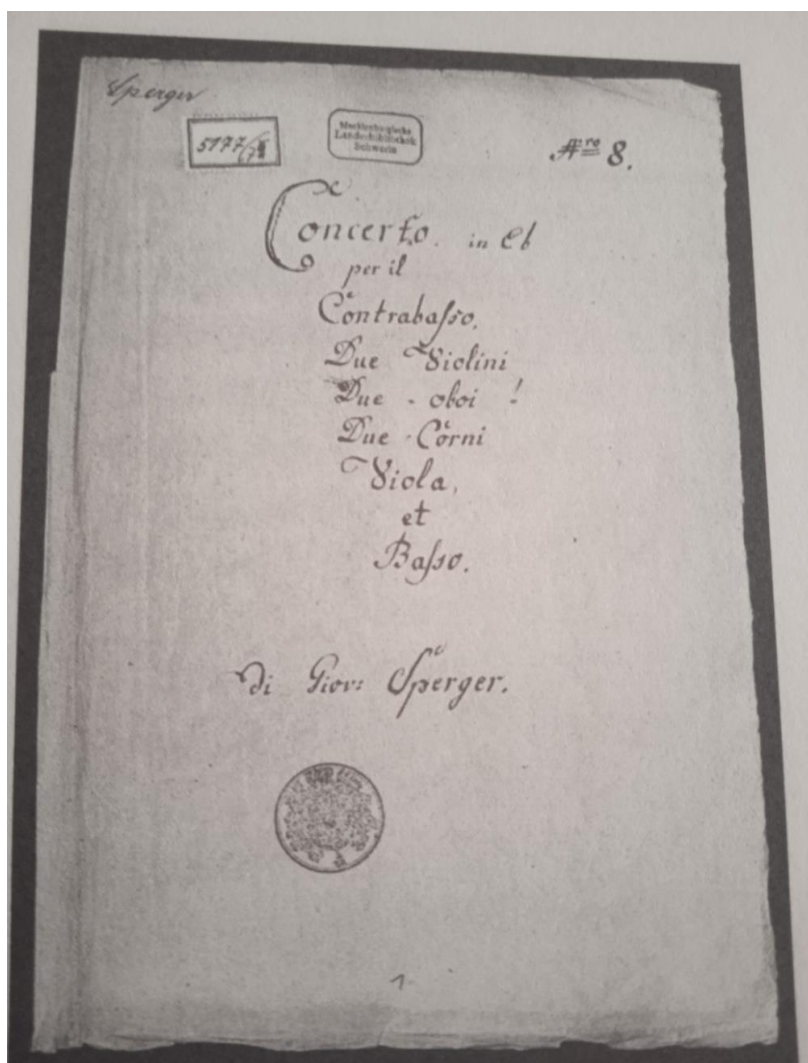 Sperger
5177/
Mecklenburgische
Landesbibliothek
Schwerin
Nro 8.
Concerto. in Eb
per il
Contrabaſso.
Due Violini
Due - oboi !
Due - Corni
Viola,
et
Baſso.
di Giov: Sperger.
1